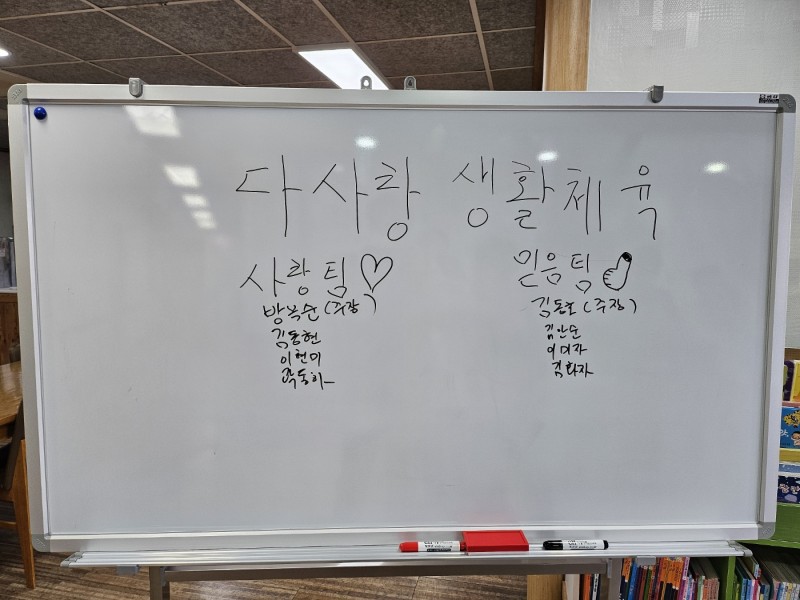 다사랑 생활체육
사랑팀♡
방녹순(주장)
김동현
이현미
곽동하
믿음팀
김동호(주장)
김안순
이미자
김화자